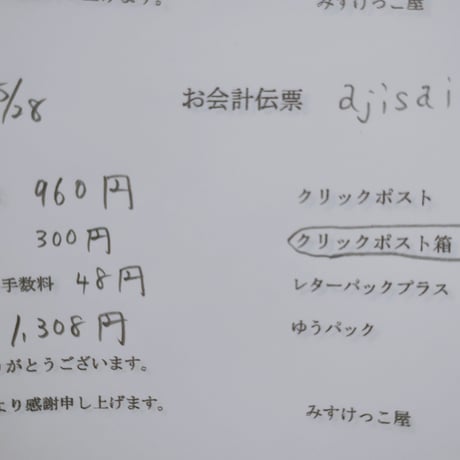 みすけっこ屋
5/28 お会計伝票 ajisai
960円 クリックポスト
300円 クリックポスト箱
手数料 48円 レターパックプラス
1,308円 ゆうパック
がとうございます。
より感謝申し上げます。 みすけっこ屋